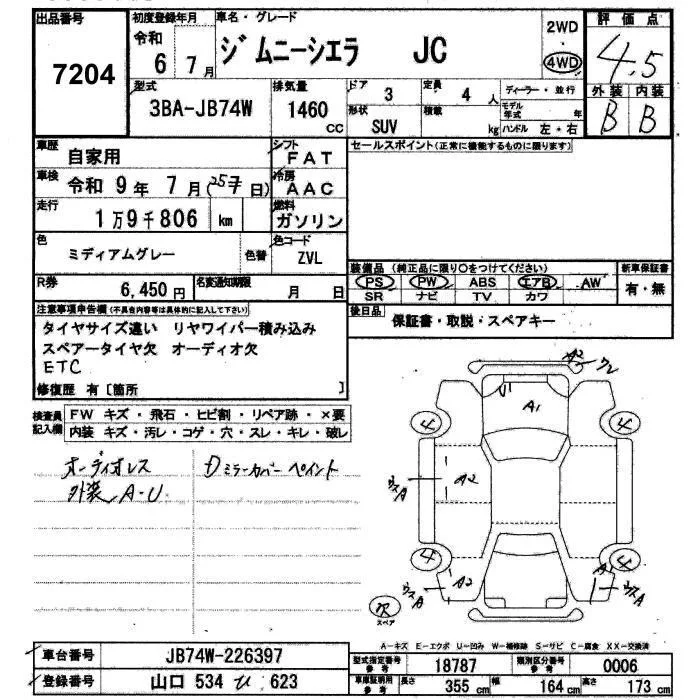 出品番号
7204
初度登録年月
令和 6年 7月
車名・グレード
ジムニーシエラ JC
2WD
4WD
評価点
4.5
外装 内装
B B
型式
3BA-JB74W
排気量
1460 cc
ドア
3
形状
SUV
定員
4 人
積載
kg
ディーラー・並行
モデル年式 年
ハンドル 左・右
車歴
自家用
シフト
FAT
車検
令和 9年 7月(257日)
冷房
AAC
走行
1万9千806 km
燃料
ガソリン
色
ミディアムグレー
色替
色コード
ZVL
R券
6,450円
名変通知期限
月 日
セールスポイント(正常に機能するものに限ります)
装備品(純正品に限り○をつけてください)
PS PW ABS エアB AW
SR ナビ TV カワ
新車保証書
有・無
後日品
保証書・取説・スペアキー
注意事項申告欄(不具合内容等は具体的に記入して下さい)
タイヤサイズ違い リヤワイパー積み込み
スペアータイヤ欠 オーディオ欠
ETC
修復歴 有〔箇所 〕
検査員記入欄
FW キズ・飛石・ヒビ割・リペア跡・×要
内装 キズ・汚レ・コゲ・穴・スレ・キレ・破レ
オーディオレス
外装 A-U
Dミラーカバー ペイント
A2
ワレ
U1
A1
4 4
ウスA
A2
4 4
ウスA
A2
ウスA
欠
スペア
A-キズ E-エクボ U-凹み W-補修跡 S-サビ C-腐食 XX-交換済
車台番号
JB74W-226397
登録番号
山口 534 ひ 623
型式指定番号 参考
18787
類別区分番号 参考
0006
車庫証明用 参考
長さ 355 cm 幅 164 cm 高さ 173 cm